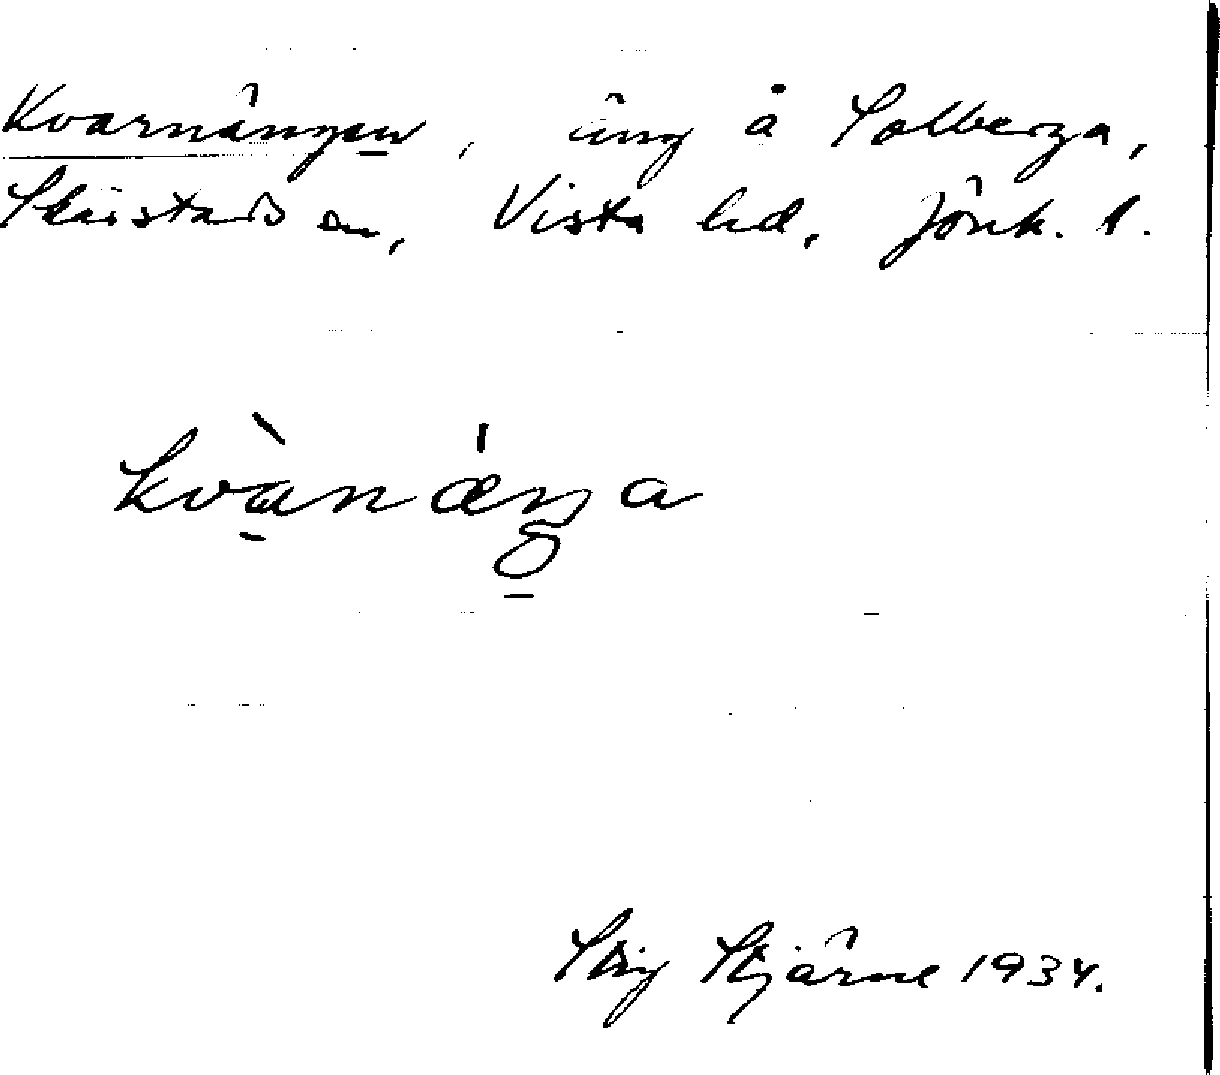 Kvarnängen, äng å Solberga,
Skärstads sn, Vista hd, Jönk. l.
kvànǽŋa
Stig Stjärne 1934.